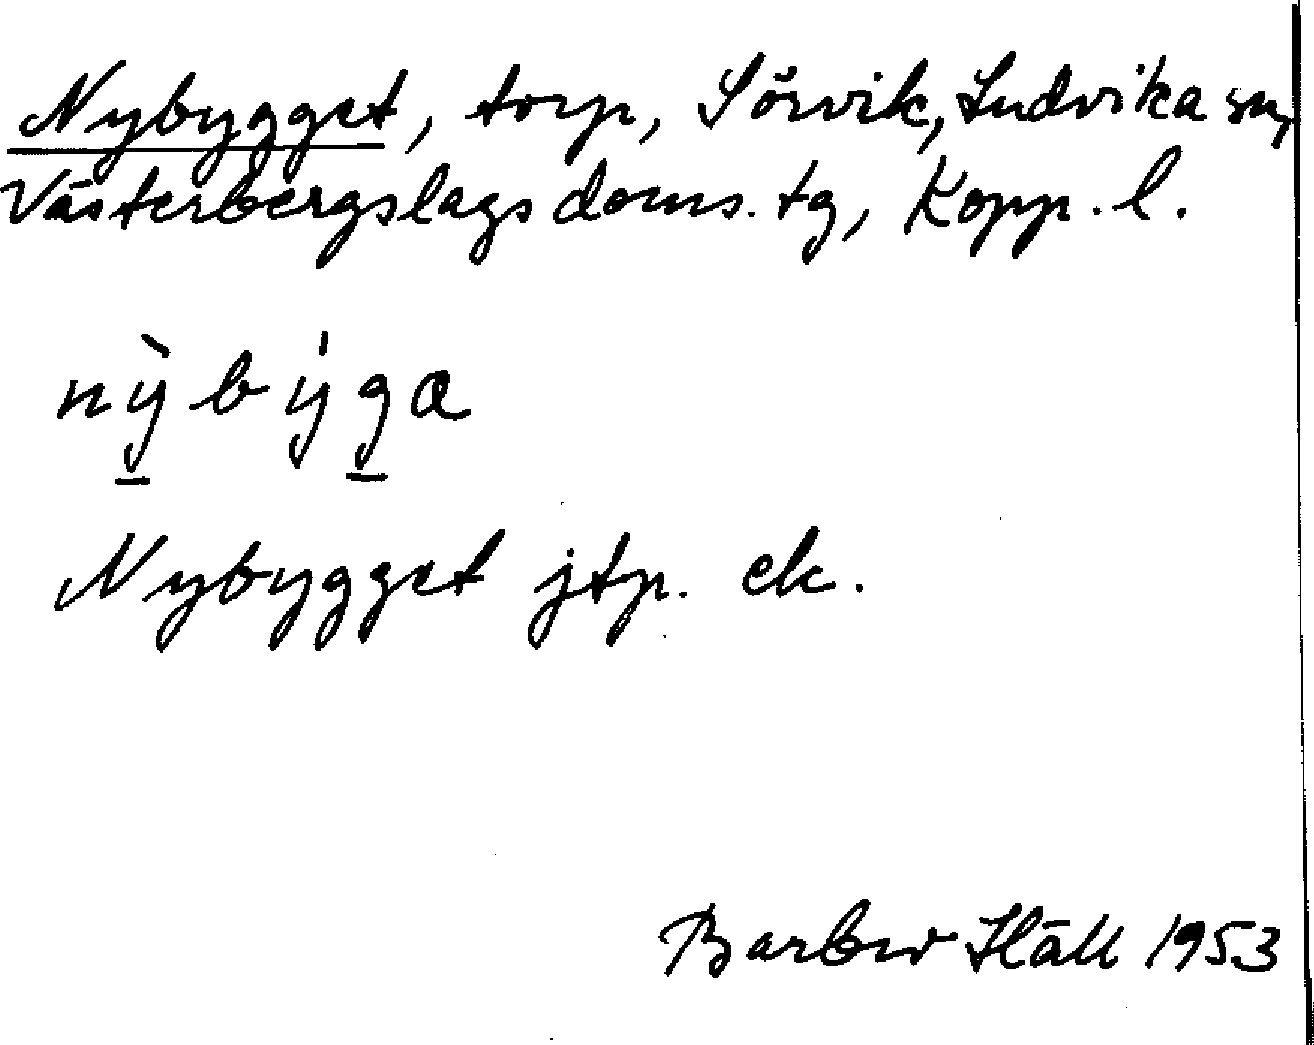 Nybygget, torp, Sörvik, Ludvika sn,
Västerbergslags doms. tg, Kopp. l.
nỳbýga
Nybygget jtp. ek.
Barbro Häll 1953